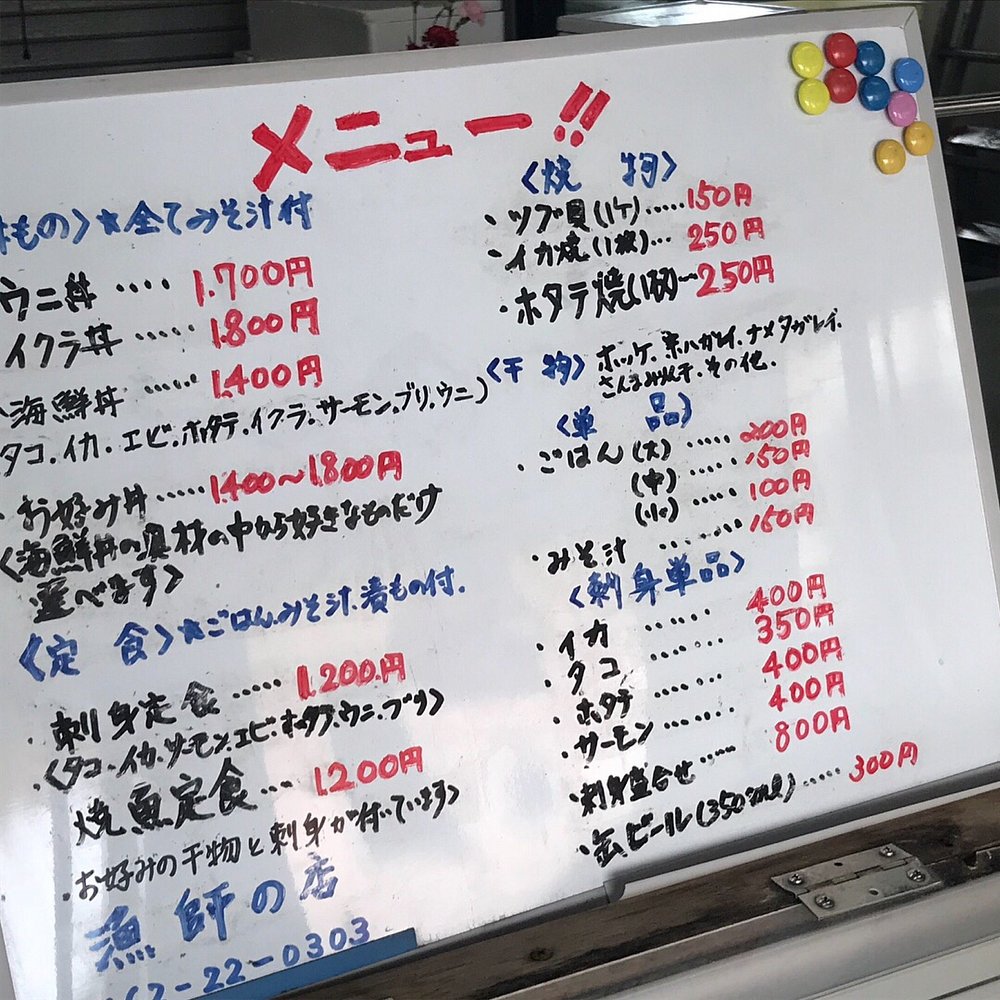 メニュー!!
もの〉★全てみそ汁付
ウニ丼 ‥‥ 1.700円
イクラ丼 ‥‥‥ 1.800円
・海鮮丼 ‥‥‥ 1.400円
タコ.イカ.エビ.ホタテ.イクラ.サーモン.ブリ.ウニ)
・お好み丼 ‥‥‥ 1.400〜1.800円
〈海鮮丼の具材の中から好きなものだけ
選べます〉
〈定 食〉★ごはん.みそ汁.漬もの付.
・刺身定食 ‥‥‥ 1.200円
〈タコ.イカ.サーモン.エビ.ホタテ.ウニ.ブリ〉
・焼魚定食‥‥ 1200円
・お好みの干物と刺身が付いています〉
漁師の店
2-22-0303
〈焼 物〉
・ツブ貝(1ケ)‥‥‥150円
・イカ焼(1枚)‥‥ 250円
・ホタテ焼(1枚)ー250円
〈干 物〉 ホッケ.糸ハガレイ.ナメタガレイ.
さんまみりん干.その他.
〈単 品〉
・ごはん(大) ‥‥‥ 200円
(中) ‥‥‥ 150円
(小) ‥‥‥ 100円
・みそ汁 ‥‥‥‥ 150円
〈刺身単品〉
・イカ ‥‥‥ 400円
・タコ ‥‥‥ 350円
・ホタテ ‥‥‥ 400円
・サーモン ‥‥‥‥ 400円
・刺身盛合せ ‥‥‥ 800円
・缶ビール(350ml) ‥‥‥ 300円